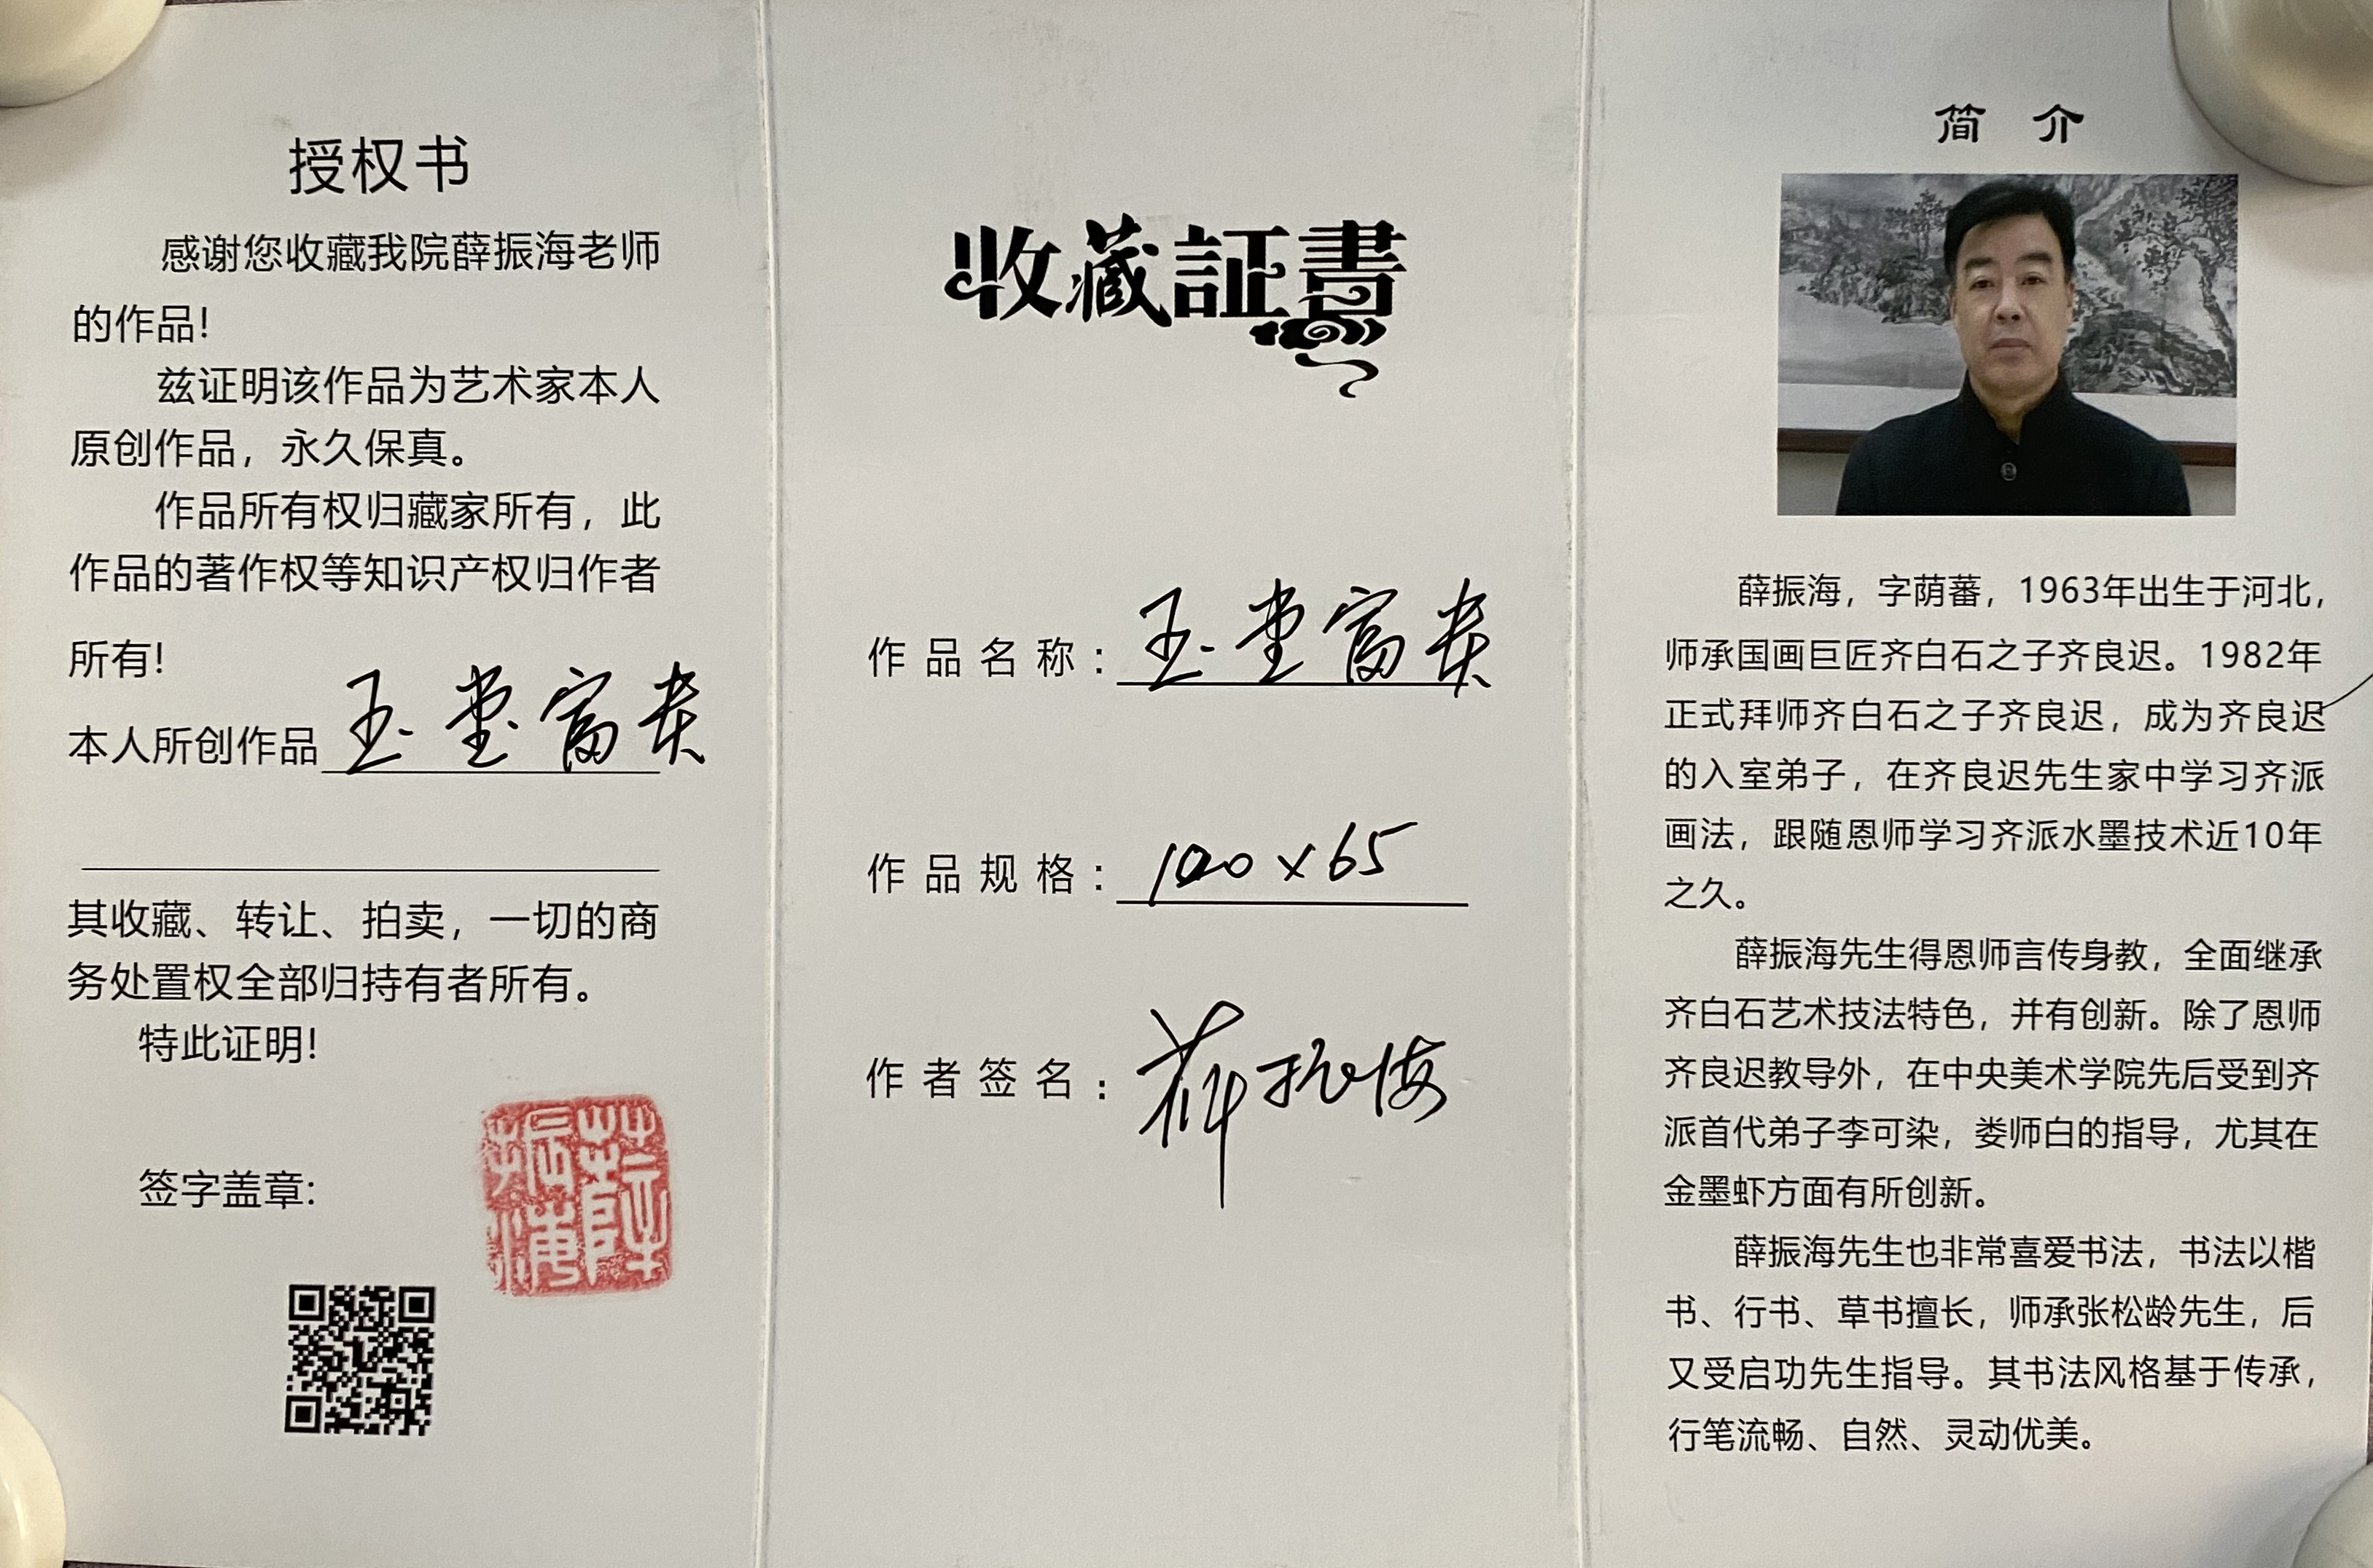 授权书
感谢您收藏我院薛振海老师
的作品!
兹证明该作品为艺术家本人
原创作品，永久保真。
作品所有权归藏家所有，此
作品的著作权等知识产权归作者
所有!
本人所创作品 玉堂富贵
其收藏、转让、拍卖，一切的商
务处置权全部归持有者所有。
特此证明!
签字盖章:
收藏証書
作品名称: 玉堂富贵
作品规格: 100×65
作者签名: 薛振海
简介
薛振海，字荫蕃，1963年出生于河北，
师承国画巨匠齐白石之子齐良迟。1982年
正式拜师齐白石之子齐良迟，成为齐良迟
的入室弟子，在齐良迟先生家中学习齐派
画法，跟随恩师学习齐派水墨技术近10年
之久。
薛振海先生得恩师言传身教，全面继承
齐白石艺术技法特色，并有创新。除了恩师
齐良迟教导外，在中央美术学院先后受到齐
派首代弟子李可染，娄师白的指导，尤其在
金墨虾方面有所创新。
薛振海先生也非常喜爱书法，书法以楷
书、行书、草书擅长，师承张松龄先生，后
又受启功先生指导。其书法风格基于传承，
行笔流畅、自然、灵动优美。